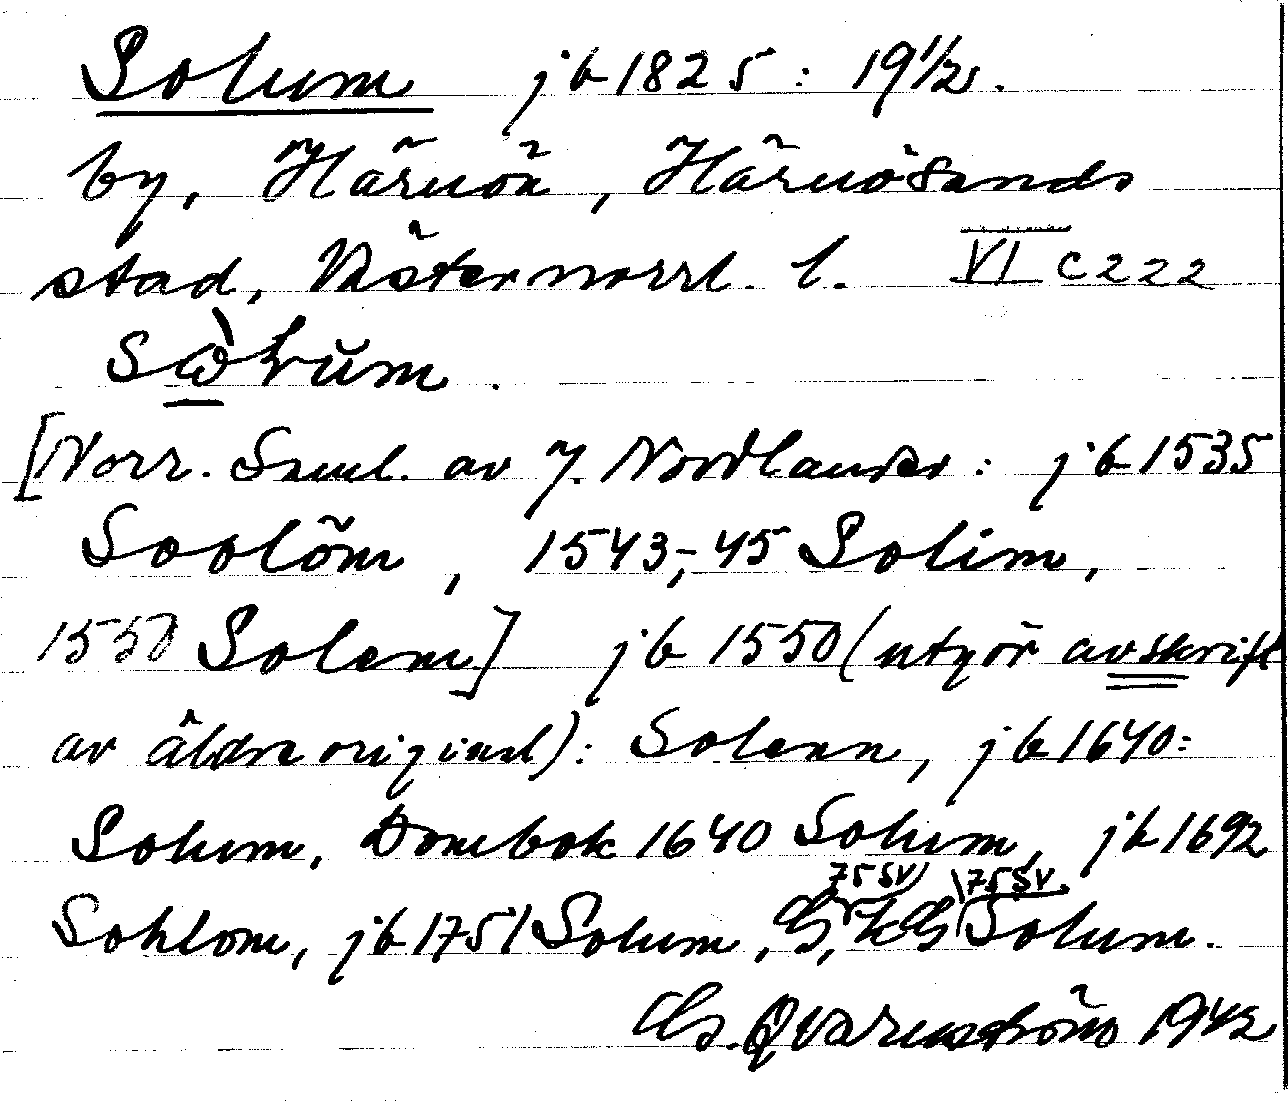 Solum jb 1825: 19 1/2.
by, Härnön, Härnösands
stad, Västernorrl. l. VI C 222
[Norr. Saml. av J. Nordlander: jb 1535
Soolöm, 1543,-45 Solim,
1550 Solem] jb 1550 (utgör avskrift
av äldre original): Solenn, jb 1640:
Solum, Dombok 1640 Solum, jb 1692
75 SV 75 SV.
Sohlom, jb 1751 Solum, Solum.
Qvarnström 1942